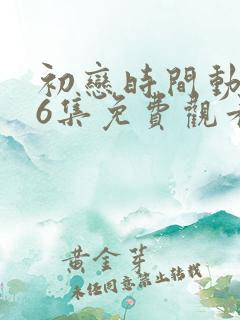 初戀時間動
6集免費觀看
黃金芽
未經同意禁止轉載